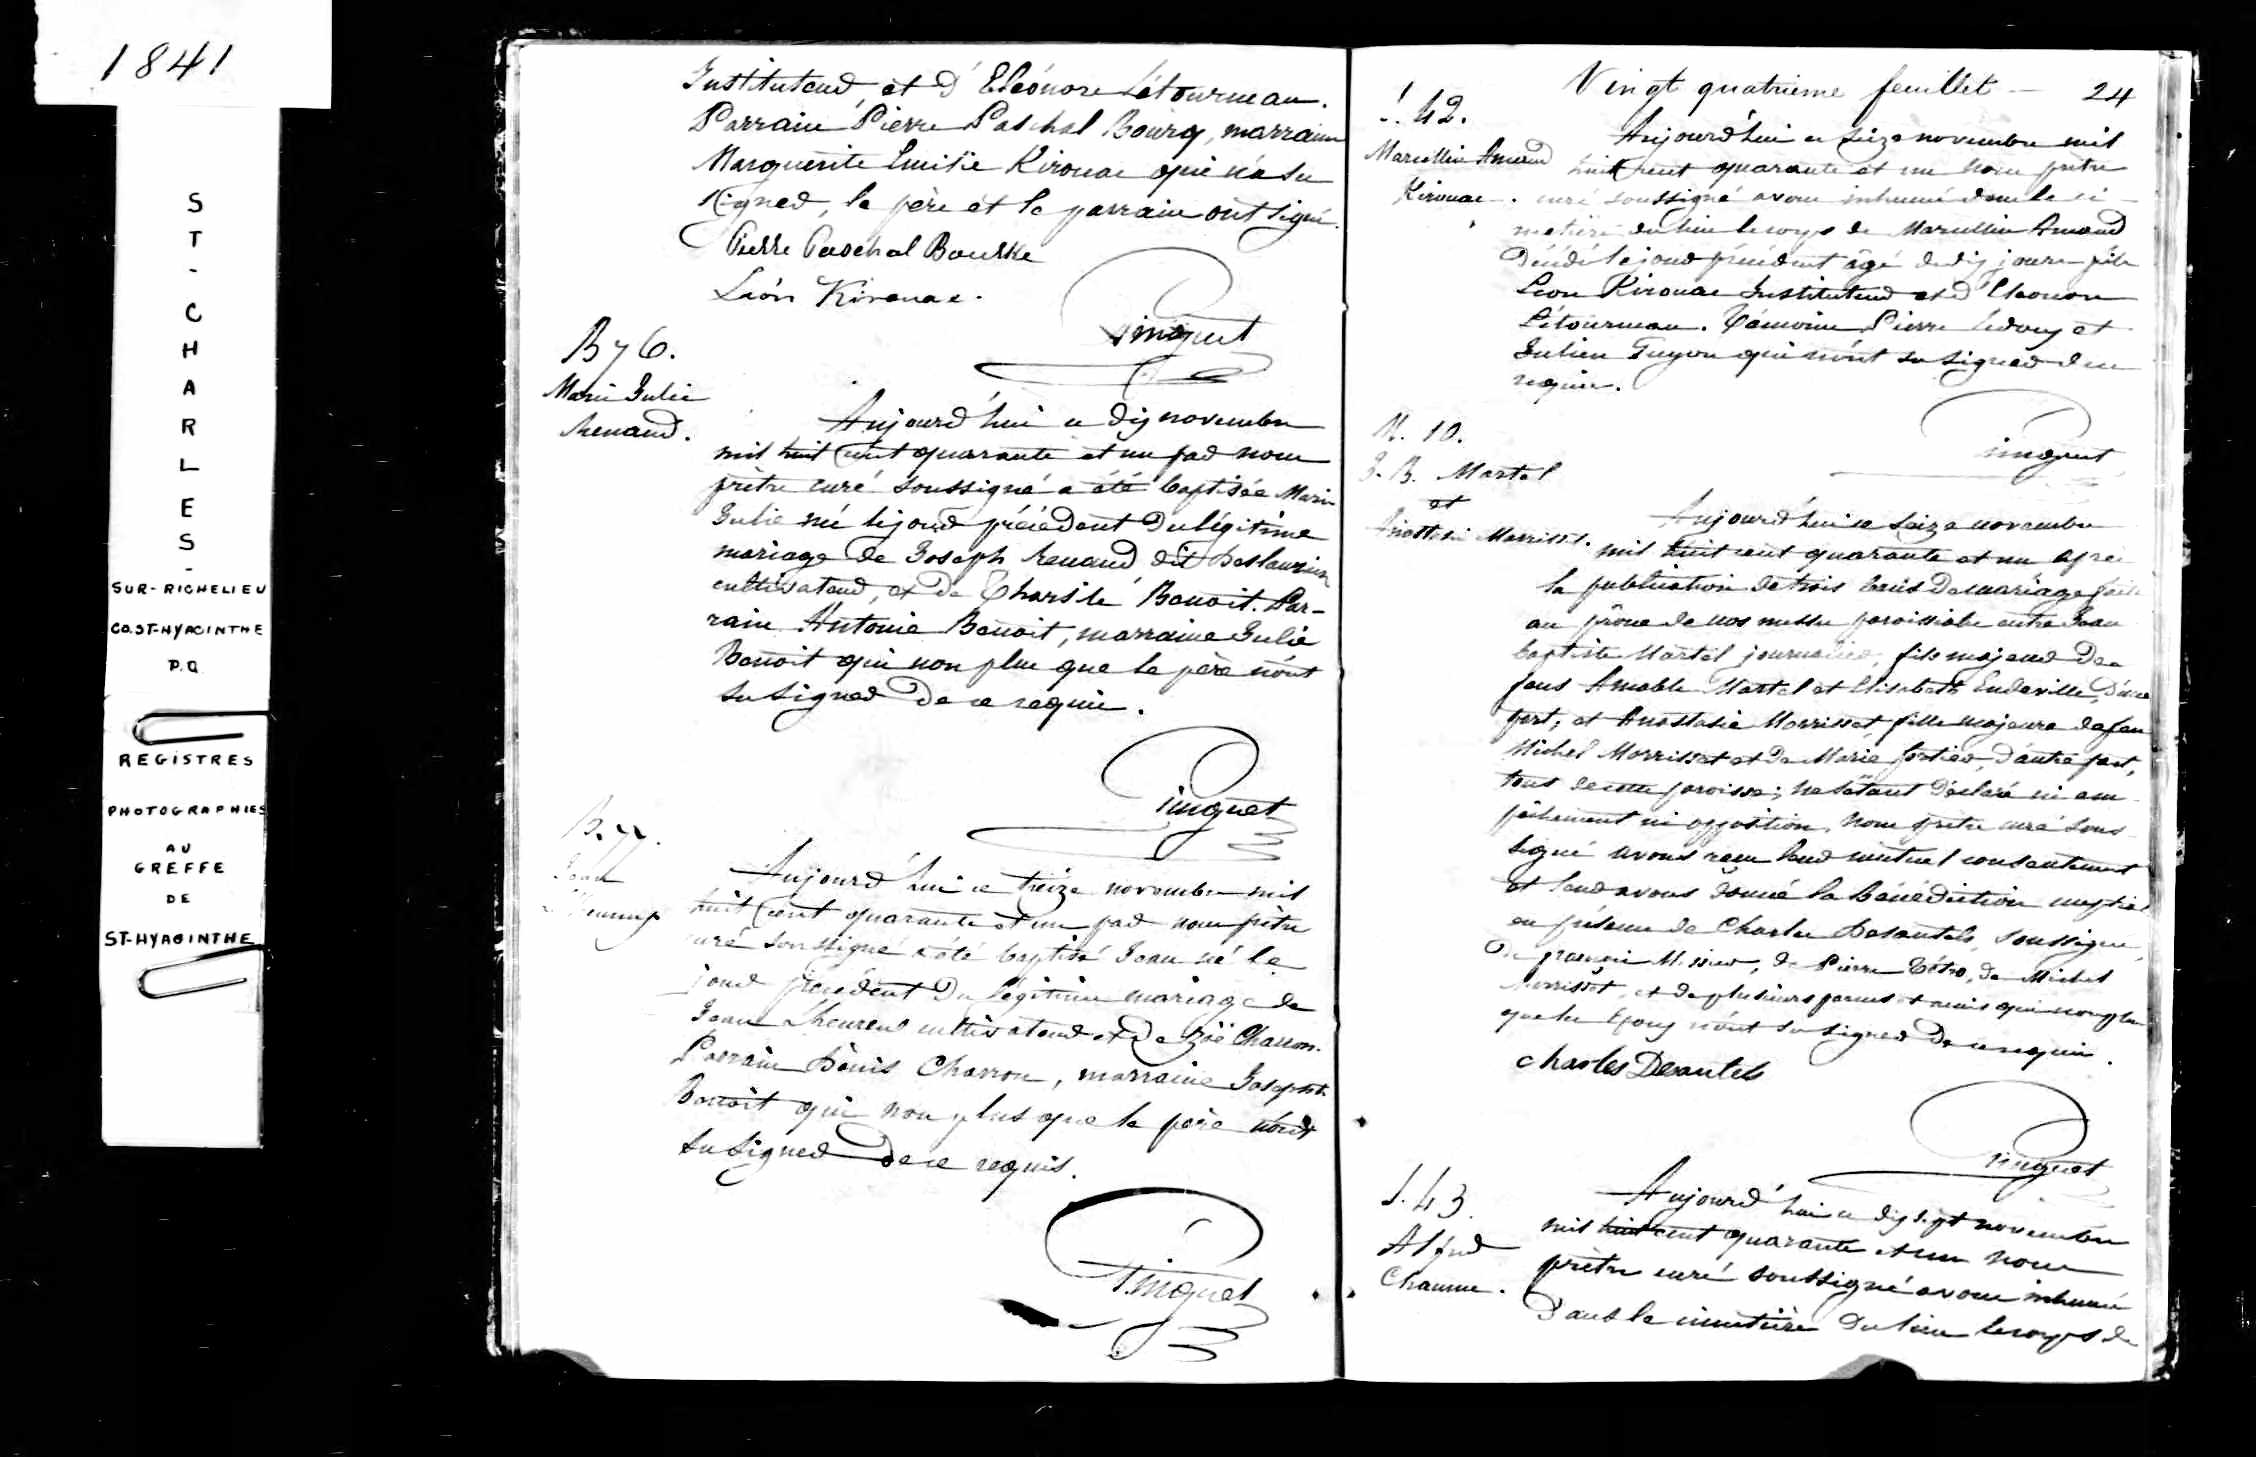 1841
ST-CHARLES-
SUR-RICHELIEU
CO. ST-HYACINTHE
P.Q
REGISTRES
PHOTOGRAPHIES
AU
GREFFE
DE
ST-HYACINTHE
Instituteur, et d'Eléonore Létourneau.
Parrain Pierre Paschal Bourg, marraine
Marguerite Emilie Kirouac qui n'a su
signer, le père et le parrain ont signé.
Pierre Paschal Bourke
Léon Kirouac.
Pinguet
B 76.
Marie Julie
Renaud.
Aujourd'hui ce dix novembre
mil huit cent quarante et un par nous
prêtre curé soussigné a été baptisée Marie
Julie née le jour précédent du légitime
mariage de Joseph Renaud dit Deslauriers
cultivateur, et de Tharsile Benoit. Par-
rain Antonie Benoit, marraine Julie
Benoit qui non plus que le père n'ont
su signer de ce requis.
Pinguet
B. 77.
Jean
Aujourd'hui ce treize novembre mil
huit cent quarante et un par nous prêtre
curé soussigné a été baptisé Jean né le
jour précédent du légitime mariage de
Jean L'heureux cultivateur et de Zoë Charron.
Parrain Denis Charron, marraine Josephte
Benoit qui non plus que le père n'ont
su signer de ce requis.
Pinguet
Vingt quatrieme feuillet — 24
S. 42.
Marcellin Amand
Kirouac.
Aujourd'hui ce seize novembre mil
huit cent quarante et un nous prêtre
curé soussigné avons inhumé dans le ci-
metière du lieu le corps de Marcellin Amand
décédé le jour précédent âgé de dix jours fils
Léon Kirouac Instituteur et d'Eléonore
Létourneau. Témoins Pierre Ledoux et
Julien Guyon qui n'ont su signer de ce
requis.
Pinguet
M. 10.
J. B. Martel
et
Anastasie Morrisset.
Aujourd'hui ce seize novembre
mil huit cent quarante et un après
la publication de trois bans de mariage faite
au prône de nos messes paroissiales entre Jean
baptiste Martel journalier, fils majeur de
feus Amable Martel et Elisabeth d'une
part; et Anastasie Morrisset, fille majeure de feu
Michel Morrisset et de Marie fortier, d'autre part,
tous de cette paroisse; ne s'étant déclaré ni em-
pêchement ni opposition, nous prêtre curé sous-
signé avons reçu leur mutuel consentement
et leur avons donné la bénédiction nuptiale
en présence de Charles Desautels, soussigné,
de françois Messier, de Pierre Tétro, de Michel
Morrisset, et de plusieurs parens et amis qui non plus
que les Epoux n'ont su signer de ce requis.
Charles Desautels
Pinguet
S. 43.
Alfred
Chaume.
Aujourd'hui ce dix sept novembre
mil huit cent quarante et un nous
prêtre curé soussigné avons inhumé
dans le cimetière du lieu le corps de